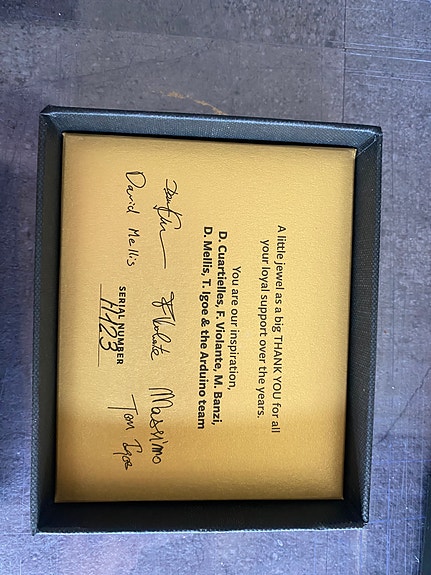 A little jewel as a big THANK YOU for all
your loyal support over the years.
You are our inspiration,
D. Cuartielles, F. Violante, M. Banzi,
D. Mellis, T. Igoe & the Arduino team
FViolante Massimo
David Mellis
Tom Igoe
SERIAL NUMBER
H123